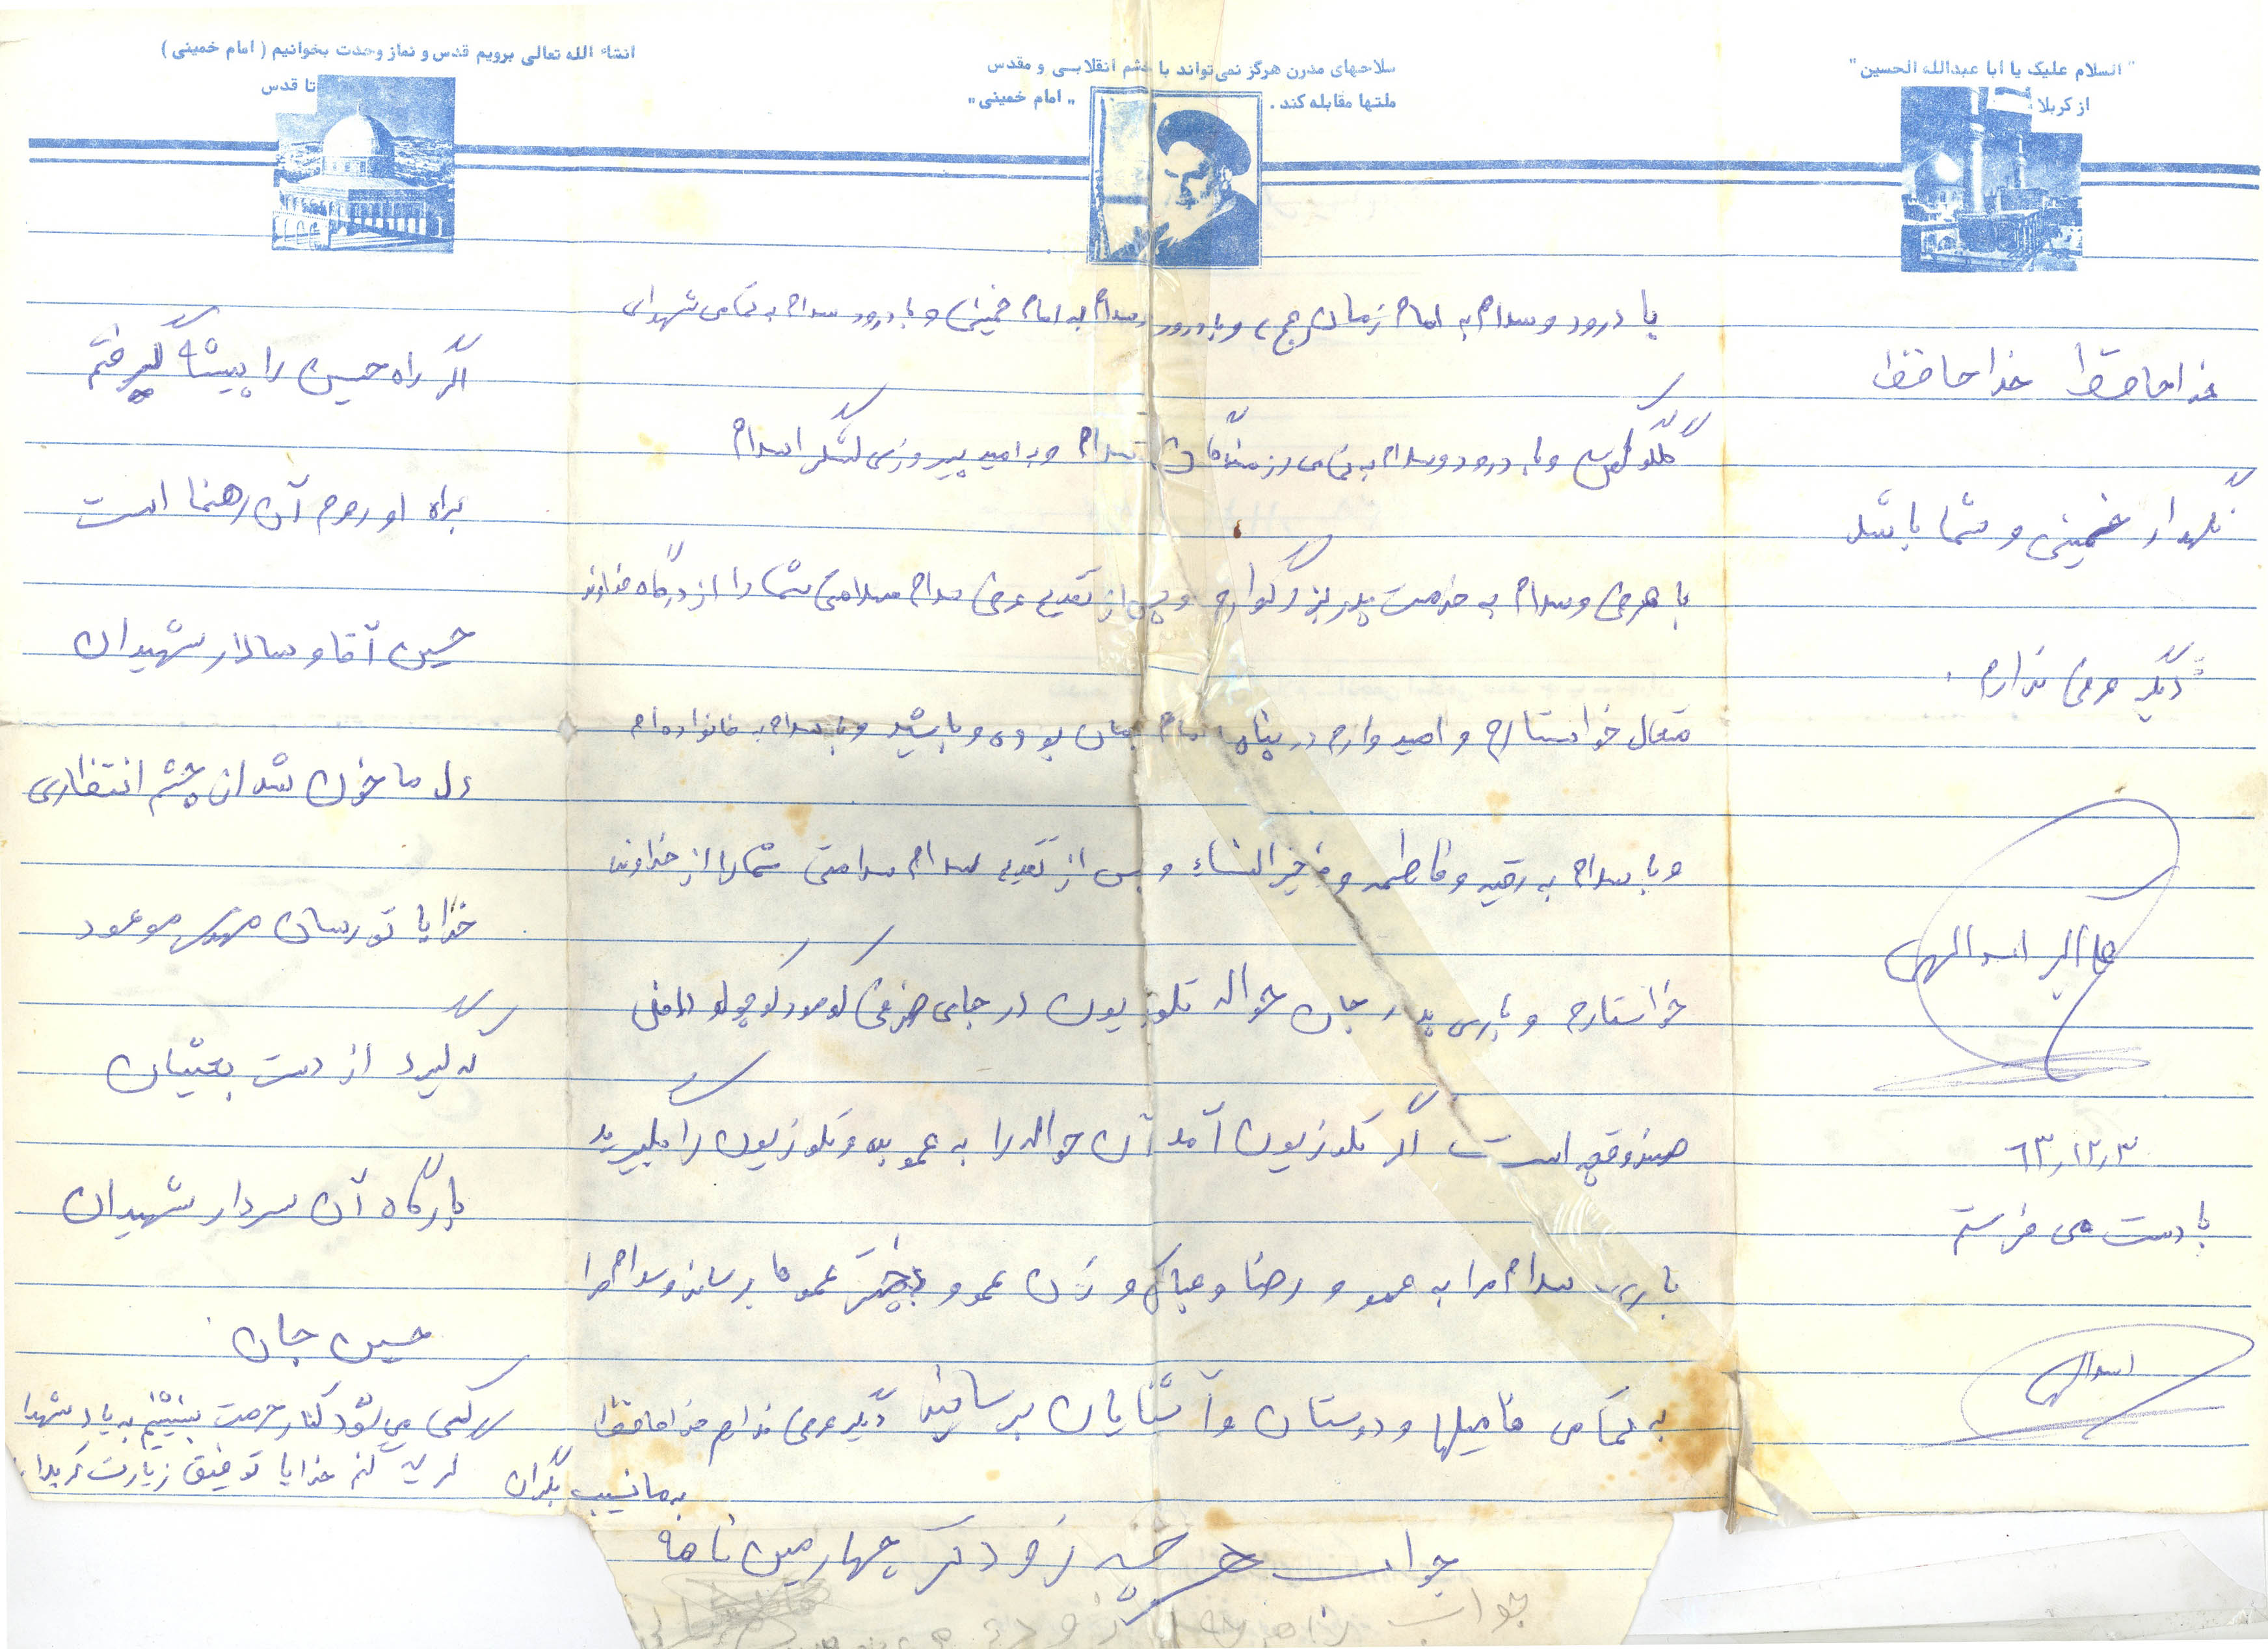 "السلام علیک یا ابا عبدالله الحسین"
از کربلا
سلاحهای مدرن هرگز نمی‌تواند با خشم انقلابی و مقدس
ملتها مقابله کند. "امام خمینی"
انشاء الله تعالی برویم قدس و نماز وحدت بخوانیم (امام خمینی)
تا قدس
با درود و سلام به امام زمان (عج) و با درود و سلام به امام خمینی و با درود سلام به تمامی شهدای
گلگون کفن و با درود و سلام به تمامی رزمندگان اسلام و به امید پیروزی لشگر اسلام
با عرض و سلام به خدمت پدر بزرگوارم و پس از تقدیم عرض سلام سلامتی شما را از درگاه خداوند
متعال خواستارم و امیدوارم در پناه امام زمان بوده و باشید و با سلام به خانواده‌ام
و با سلام به رقیه و فاطمه و فخرالنساء و پس از تقدیم سلام سلامتی شما را از خداوند
خواستارم و باری پدر جان حواله تلوزیون در جای ظرفی کومود کوچولو داخل
صندوقچه است اگر تلوزیون آمد آن حواله را به عمو بده و تلوزیون را بگیرید
باری سلام مرا به عمو و رضا و عباس و زن عمو و دختر عموها برسانید و سلام مرا
به تمامی فامیلها و دوستان و آشنایان برسانید دیگر عرضی ندارم خداحافظ
جواب هر چه زودتر چهارمین نامه
جواب نامه زود
اگر راه حسین را پیشه گیرفتم
براه او روم آن رهنما است
حسین آقا و سالار شهیدان
دل ما خون شد از چشم انتظاری
خدایا تو رسان مهدی موعود
که گیرد از دست بعثیان
بارگاه آن سردار شهیدان
حسین جان
کی می‌شود کنار حرمت بنشینم به یاد شهدا
گریه کنم خدایا توفیق زیارت کربلا
به ما نسیب بگردان
خداحافظ خداحافظ
نگهدار خمینی و شما باشد
دیگر عرضی ندارم.
علی اکبر اسدالهی
۶۳٫۱۲٫۳
با دست می فرستم
اسدالهی